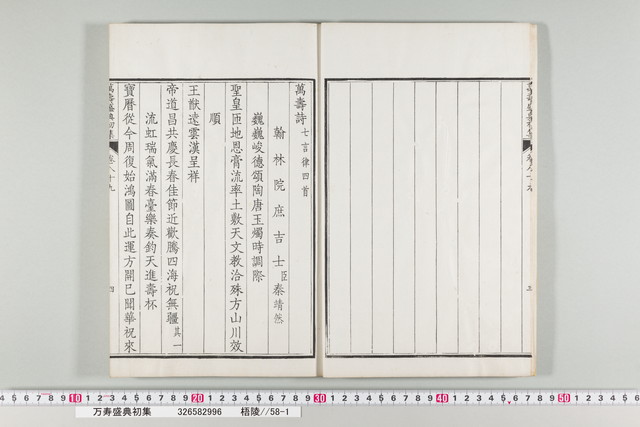 萬壽詩七言律四首
翰林院庶吉士臣秦靖然
巍巍峻德頌陶唐玉燭時調際
聖皇匝地恩膏流率土敷天文教洽殊方山川效
順
王猷遠雲漢呈祥
帝道昌共慶長春佳節近歡騰四海祝無疆其一
流虹瑞氣滿春臺樂奏鈞天進壽杯
寶曆從今周復始鴻圖自此運方開已聞華祝來
萬壽盛典初集
卷八十九
四
10 20 30 40 50
万寿盛典初集 326582996 梧陵//58-1